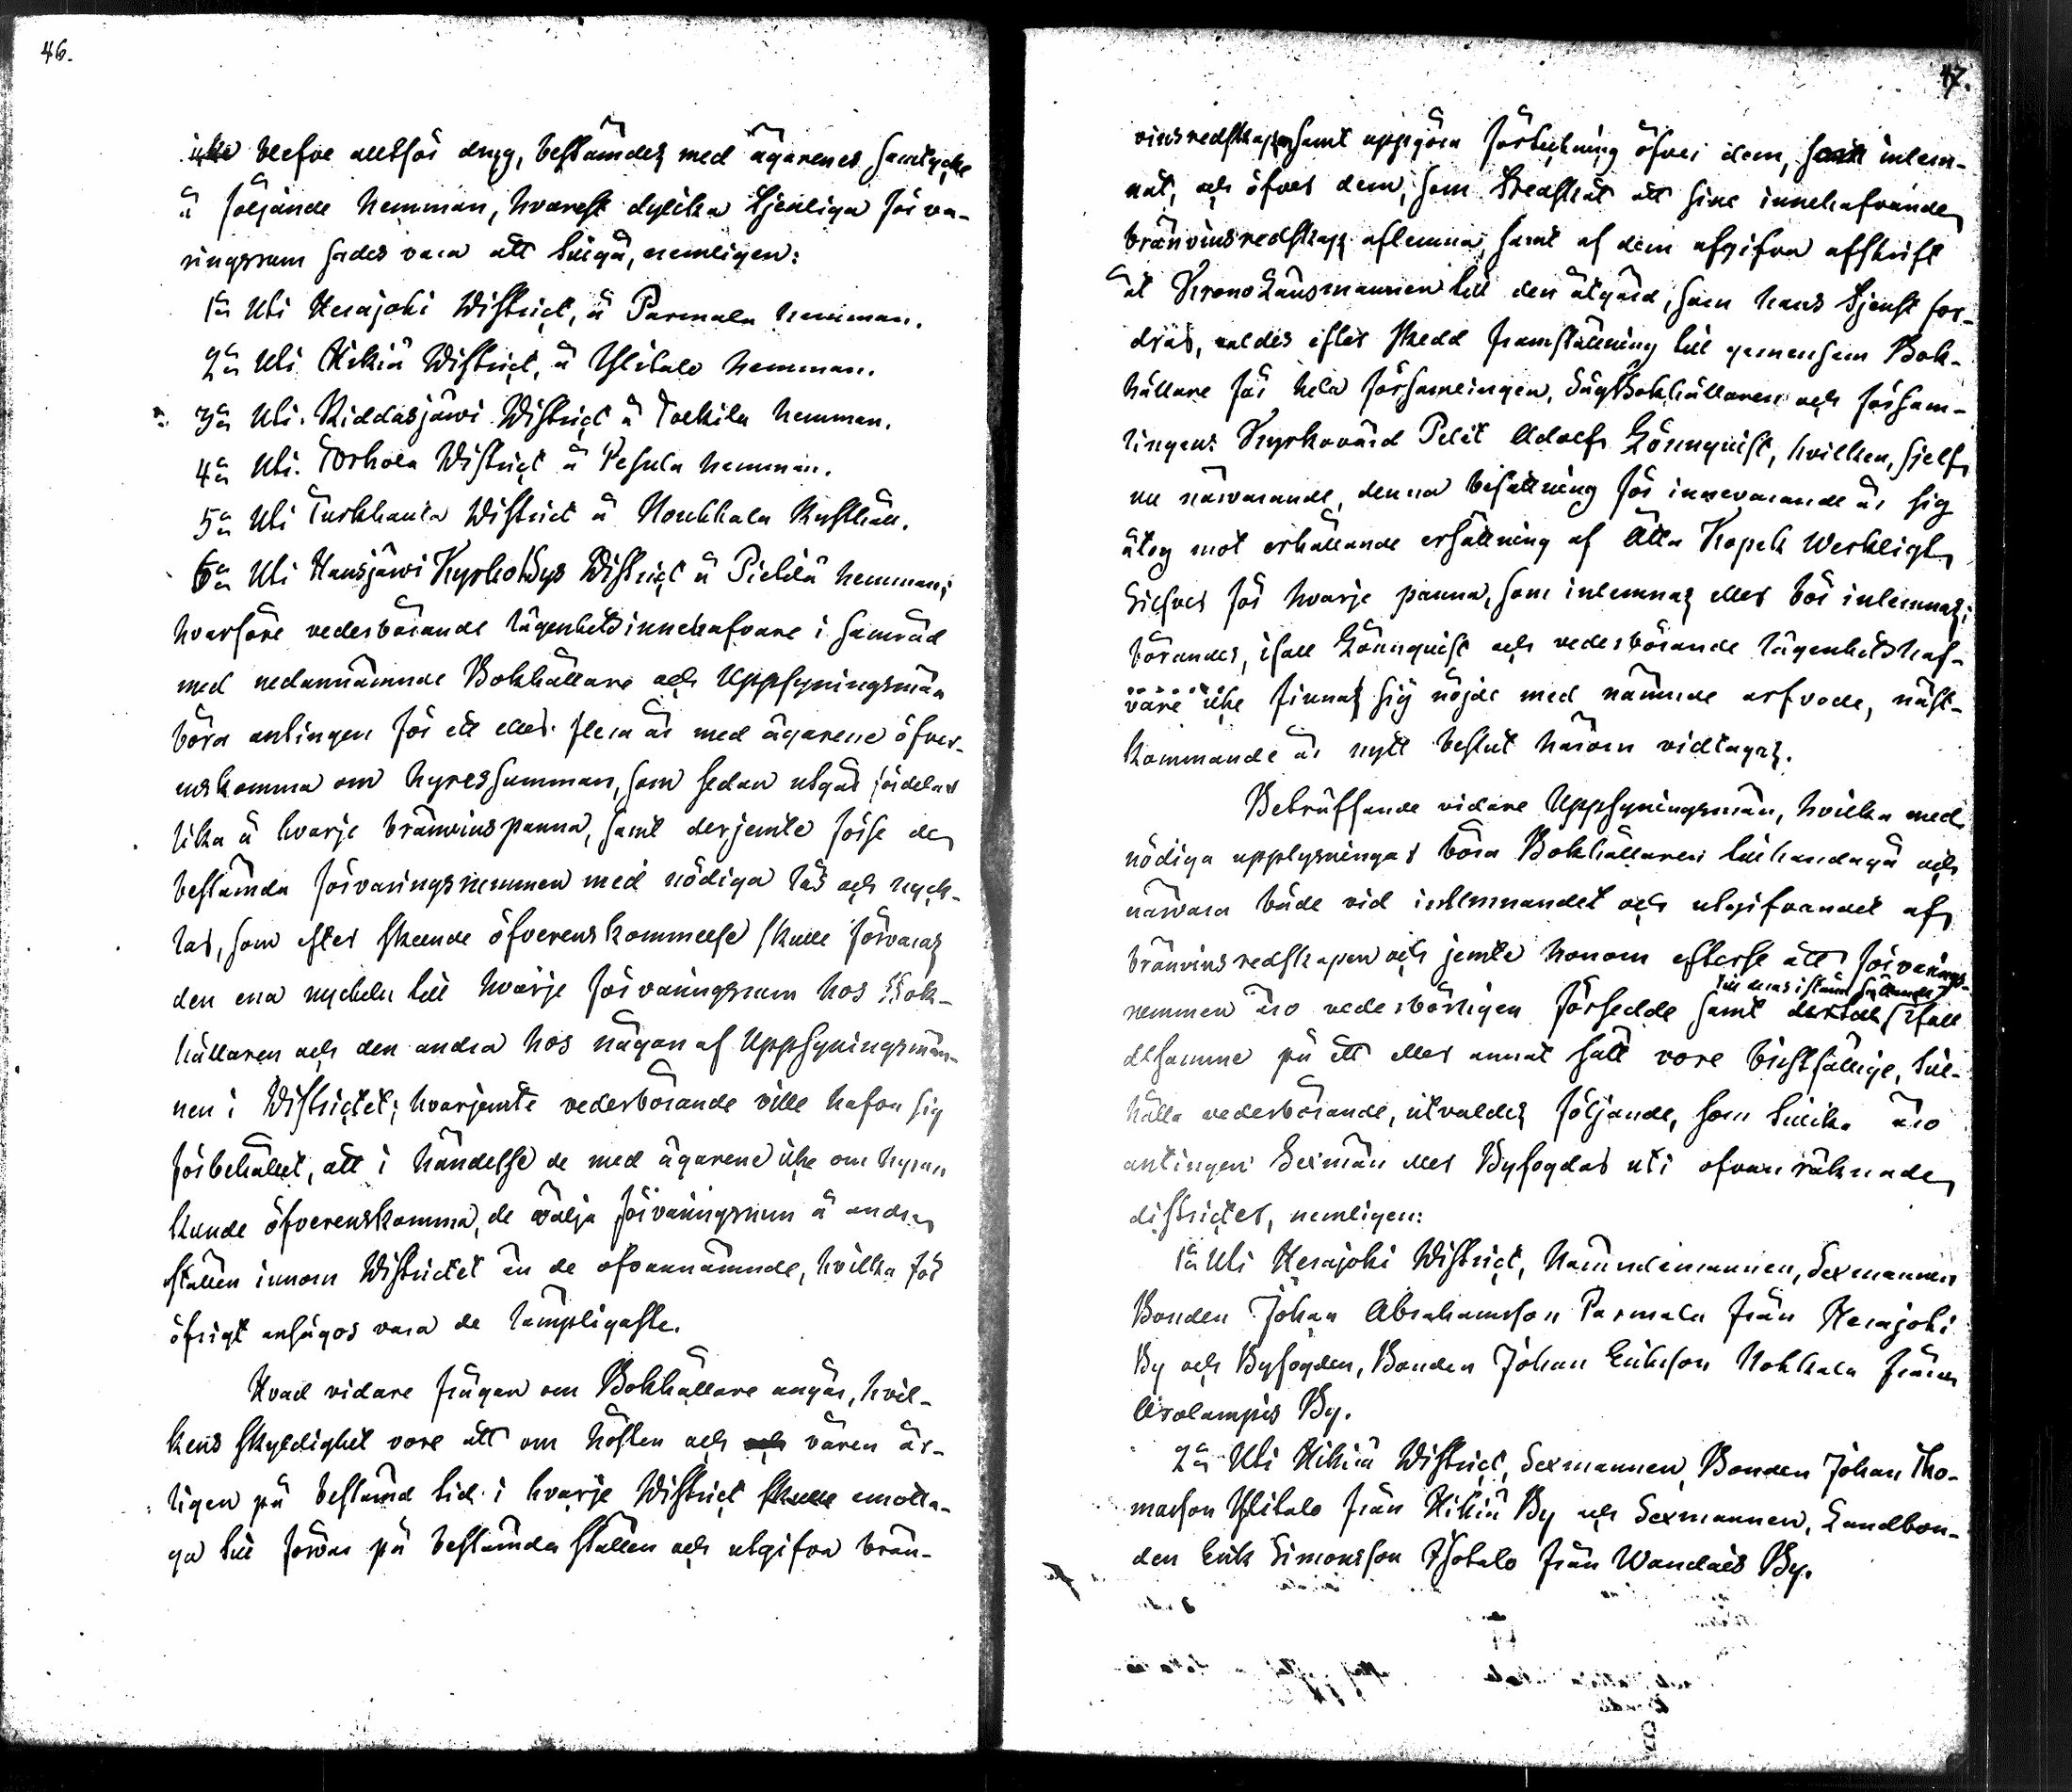 46.
icke blefve alltför dryg, bestämdes med ägarenes samtycke
å följande hemman, hvarest dylika tjenliga förva-
ringsrum sades vara att tillgå, nemligen:
1a Uti Herajoki District, å Parmala hemman.
2a Uti Hikiä District, å Ylitalo hemman.
3a Uti Riddasjärvi District å Tolkila hemman.
4a Uti Torhola District å Pesula hemman.
5a Uti Turkhauta District å Noukkala Rusthåll.
6a Uti Hausjärwi Kyrkobys District å Pietilä hemman;
hvarföre vederbörande lägenhetsinnehafvare i samråd
med nedannämnde Bokhållare och Uppsyningsmän
böra antingen för ett eller flera år med ägarene öfver-
enskomma om hyressumman, som sedan utgår fördelad
lika å hvarje bränvinspanna, samt derjemte förse de
bestämda förvaringsrummen med nödiga lås och nyck-
lar, som efter skeende öfverenskommelse skulle förvaras
den ena nyckeln till hvarje förvaringsrum hos Bok-
hållaren och den andra hos någon af Uppsyningsmän-
nen i Districtet; hvarjemte vederbörande ville hafva sig
förbehållet, att i händelse de med ägarene icke om hyran
kunde öfverenskomma, de välja förvaringsrum å andra
ställen innom Districtet än de ofvannämnde, hvilka för
öfrigt ansågos vara de lämpligaste.
Hvad vidare frågan om Bokhållare angår, hvil-
kens skyldighet vore att om hösten och och våren år-
ligen på bestämd tid i hvarje District skulle emotta-
ga till förvar på bestämda ställen och utgifva brän-
47.
vinsredskapen samt uppgöra förteckning öfver dem, som inlem-
nat, och öfver dem, som tredskat att sine innehafvande
bränvinsredskap aflemna, samt af dem afgifva afskrift
åt KronoLänsmannen till den åtgärd, som hans tjenst for-
drar, valdes efter skedd framställning till gemensam Bok-
hållare för hela församlingen, Sågbokhållaren och försam-
lingens Kyrkovärd Petit Adolf Lönnquist, hvilken, sjelf
nu närvarande, denna befattning för innevarande år sig
åtog mot erhållande ersättning af Åtta Kopek Werkligt
Silfver för hvarje panna, som inlemnas eller bör inlemnas;
börandes, ifall Lönnquist och vederbörande lägenhetshaf-
vare icke finnas sig nöjde med nämnde arfvode, näst-
kommande år nytt beslut härom vidtagas.
Beträffande vidare Uppsyningsmän, hvilka med
nödiga upplysningar böra Bokhållaren tillhandagå och
närvara både vid inlemnandet och utgifvandet af
bränvinsredskapen och jemte honom efterse att förvarings-
rummen äro vederbörligen försedde samt
desamme på ett eller annat sätt vore bristfällige, till-
hålla vederbörande, utvaldes följande, som tillika äro
antingen Sexmän eller Byfogdar uti ofvanräknade
districter, nemligen:
1a Uti Herajoki District, Nämndemannen, Sexmannen
Bonden Johan Abrahamsson Parmala från Herajoki
By och Byfogden, Bonden Johan Eriksson Nokkala från
Arolampis By.
2a Uti Hikiä District, Sexmannen, Bonden Johan Tho-
masson Ylitalo från Hikiä By och Sexmannen, Landbon-
den Erik Simonsson Isotalo från Wandais By.